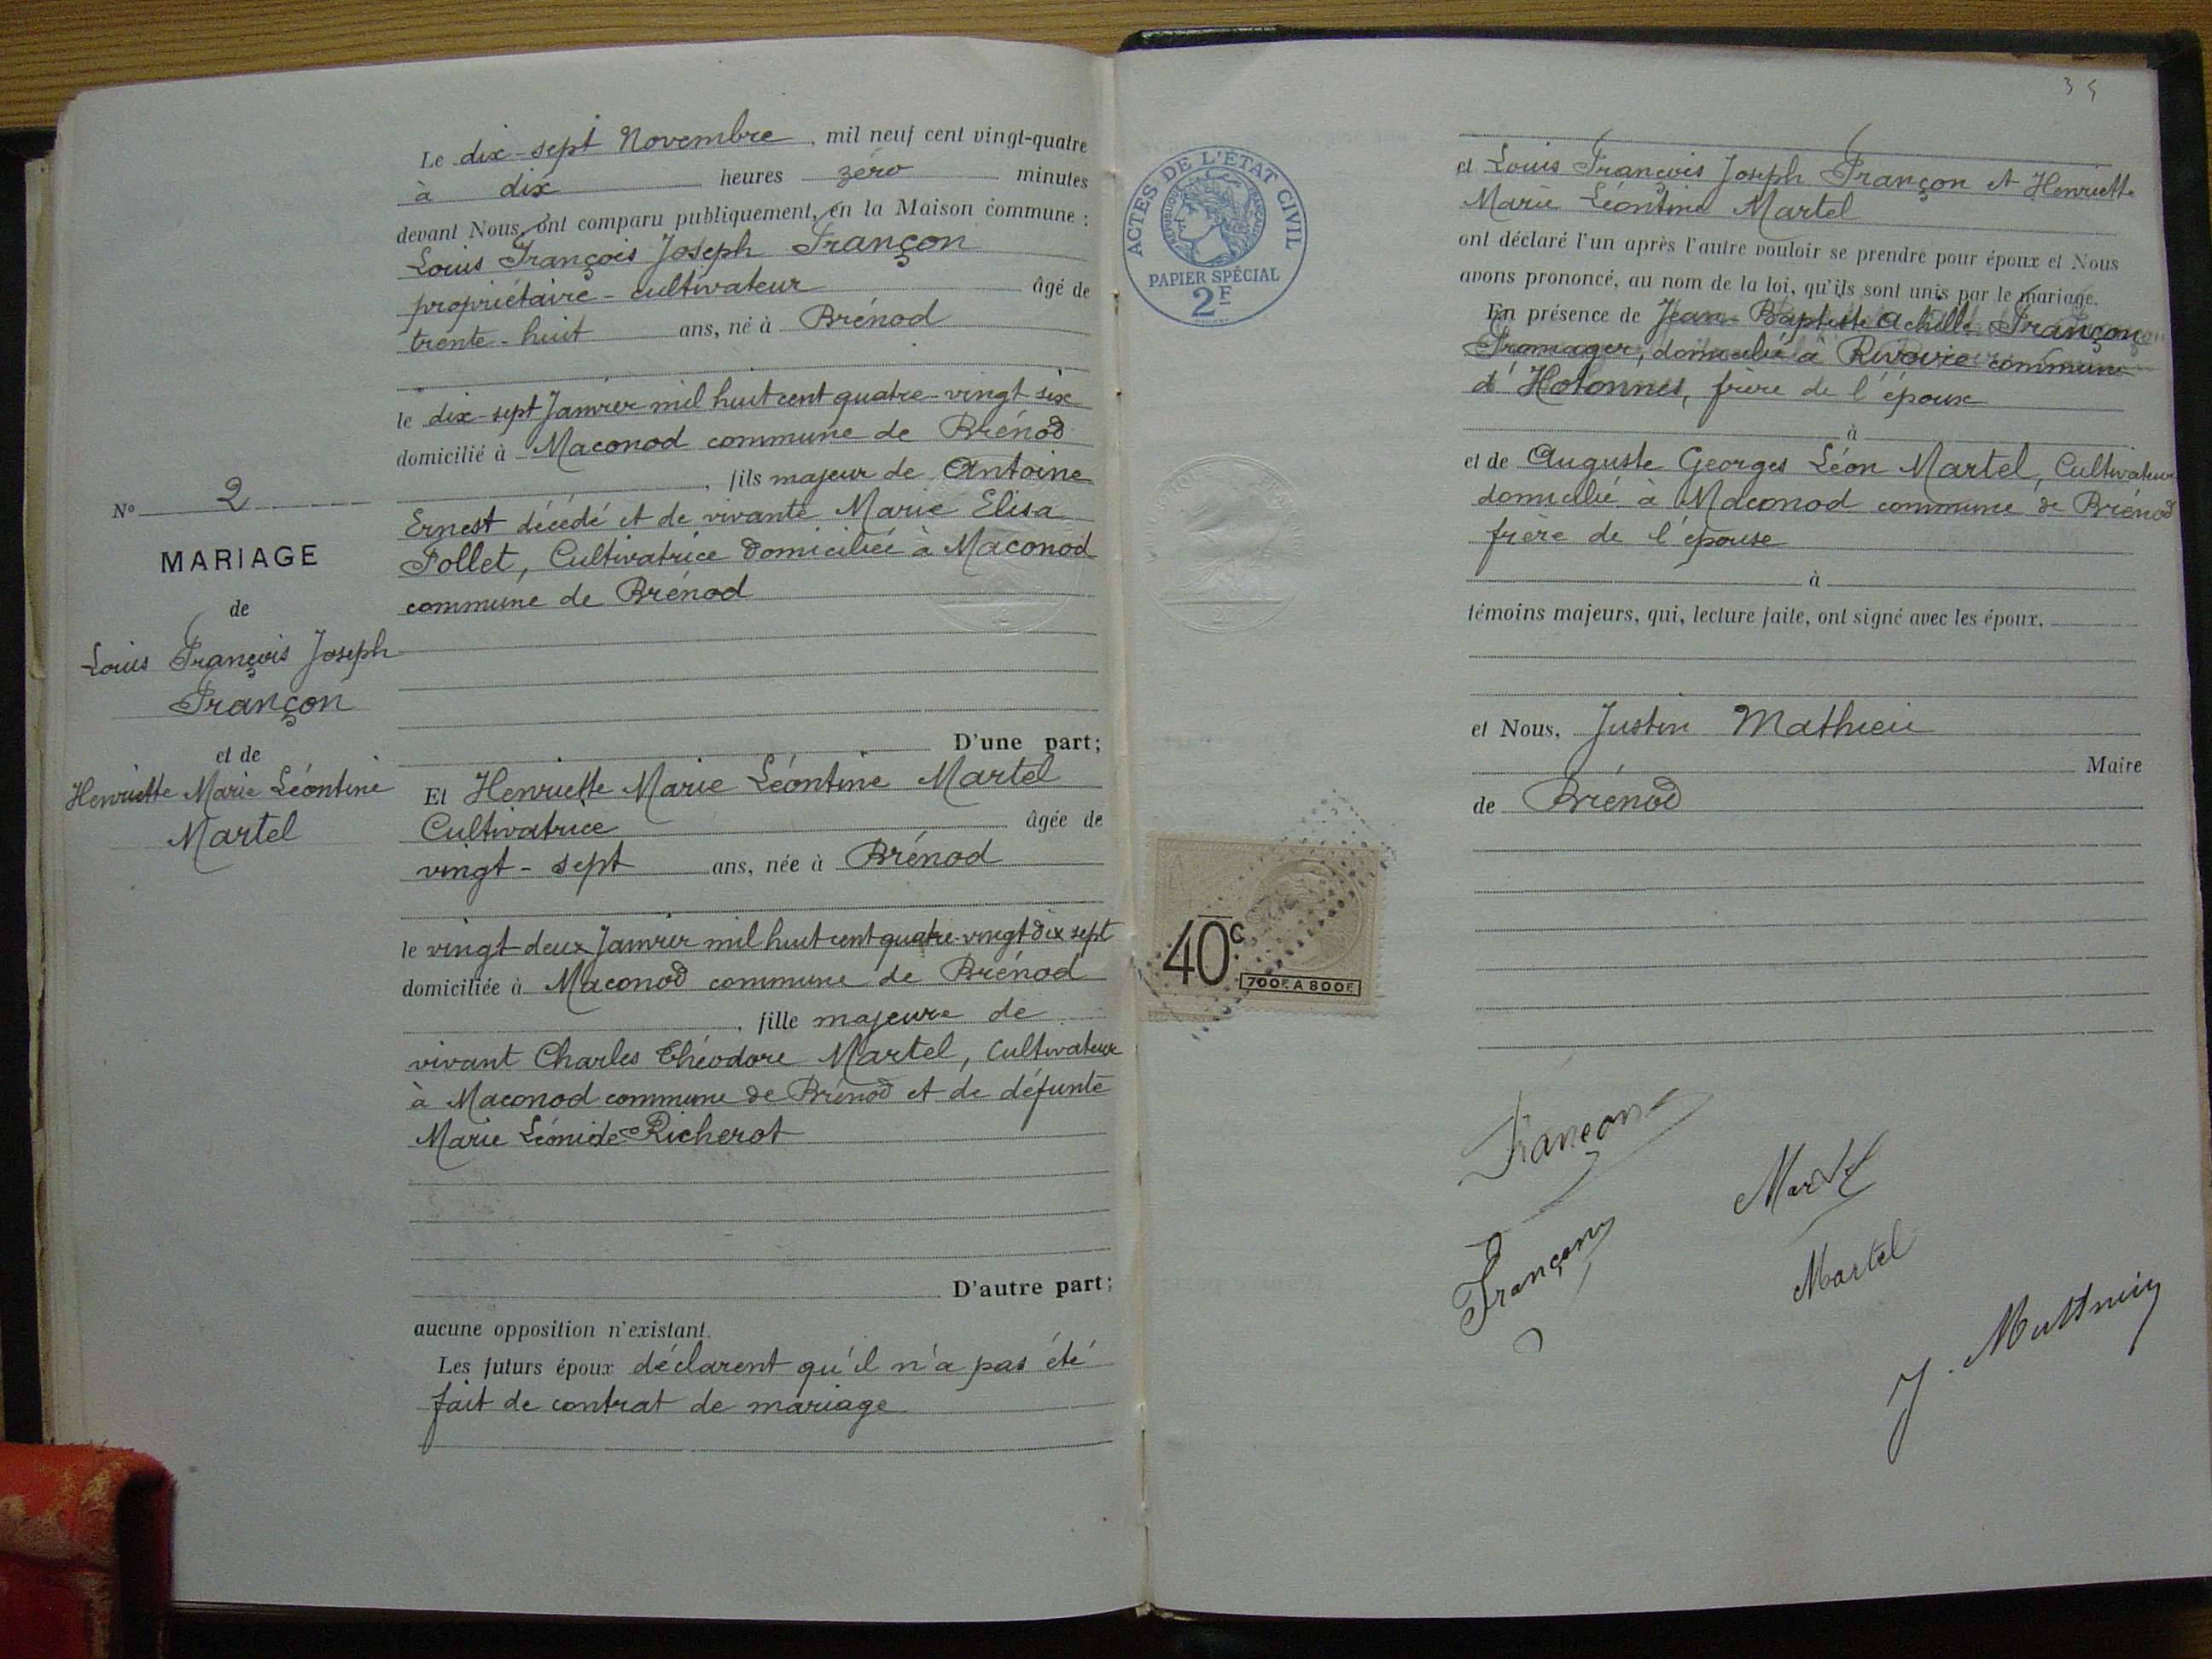 Le dix-sept Novembre, mil neuf cent vingt-quatre
à dix heures zéro minutes
devant Nous, ont comparu publiquement, en la Maison commune :
Louis François Joseph Françon
propriétaire - cultivateur âgé de
trente-huit ans, né à Brénod
le dix-sept Janvier mil huit cent quatre-vingt six
domicilié à Maconod commune de Brénod
, fils majeur de Antoine
Ernest décédé et de vivante Marie Elisa
Follet, Cultivatrice domiciliée à Maconod
commune de Brénod
D'une part;
N° 2
MARIAGE
de
Louis François Joseph
Françon
et de
Henriette Marie Léontine
Martel
Et Henriette Marie Léontine Martel
Cultivatrice âgée de
vingt-sept ans, née à Brénod
le vingt-deux Janvier mil huit cent quatre-vingt dix sept
domiciliée à Maconod commune de Brénod
, fille majeure de
vivant Charles Théodore Martel, Cultivateur
à Maconod commune de Brénod et de défunte
Marie Léonide Richerot
D'autre part;
aucune opposition n'existant.
Les futurs époux déclarent qu'il n'a pas été
fait de contrat de mariage
ACTES DE L'ÉTAT CIVIL
RÉPUBLIQUE FRANÇAISE
PAPIER SPÉCIAL
2F
40c
700F. A 800F.
35
et Louis François Joseph Françon et Henriette
Marie Léontine Martel
ont déclaré l'un après l'autre vouloir se prendre pour époux et Nous
avons prononcé, au nom de la loi, qu'ils sont unis par le mariage.
En présence de Jean-Baptiste Achille Françon
Fromager, domicilié à Rivoire commune
d'Hotonnes, frère de l'époux
à
et de Auguste Georges Léon Martel, Cultivateur
domicilié à Maconod commune de Brénod
frère de l'épouse
à
témoins majeurs, qui, lecture faite, ont signé avec les époux,
et Nous, Justin Mathieu
Maire
de Brénod
Françon
Martel
Françon
Martel
J. Mathieu